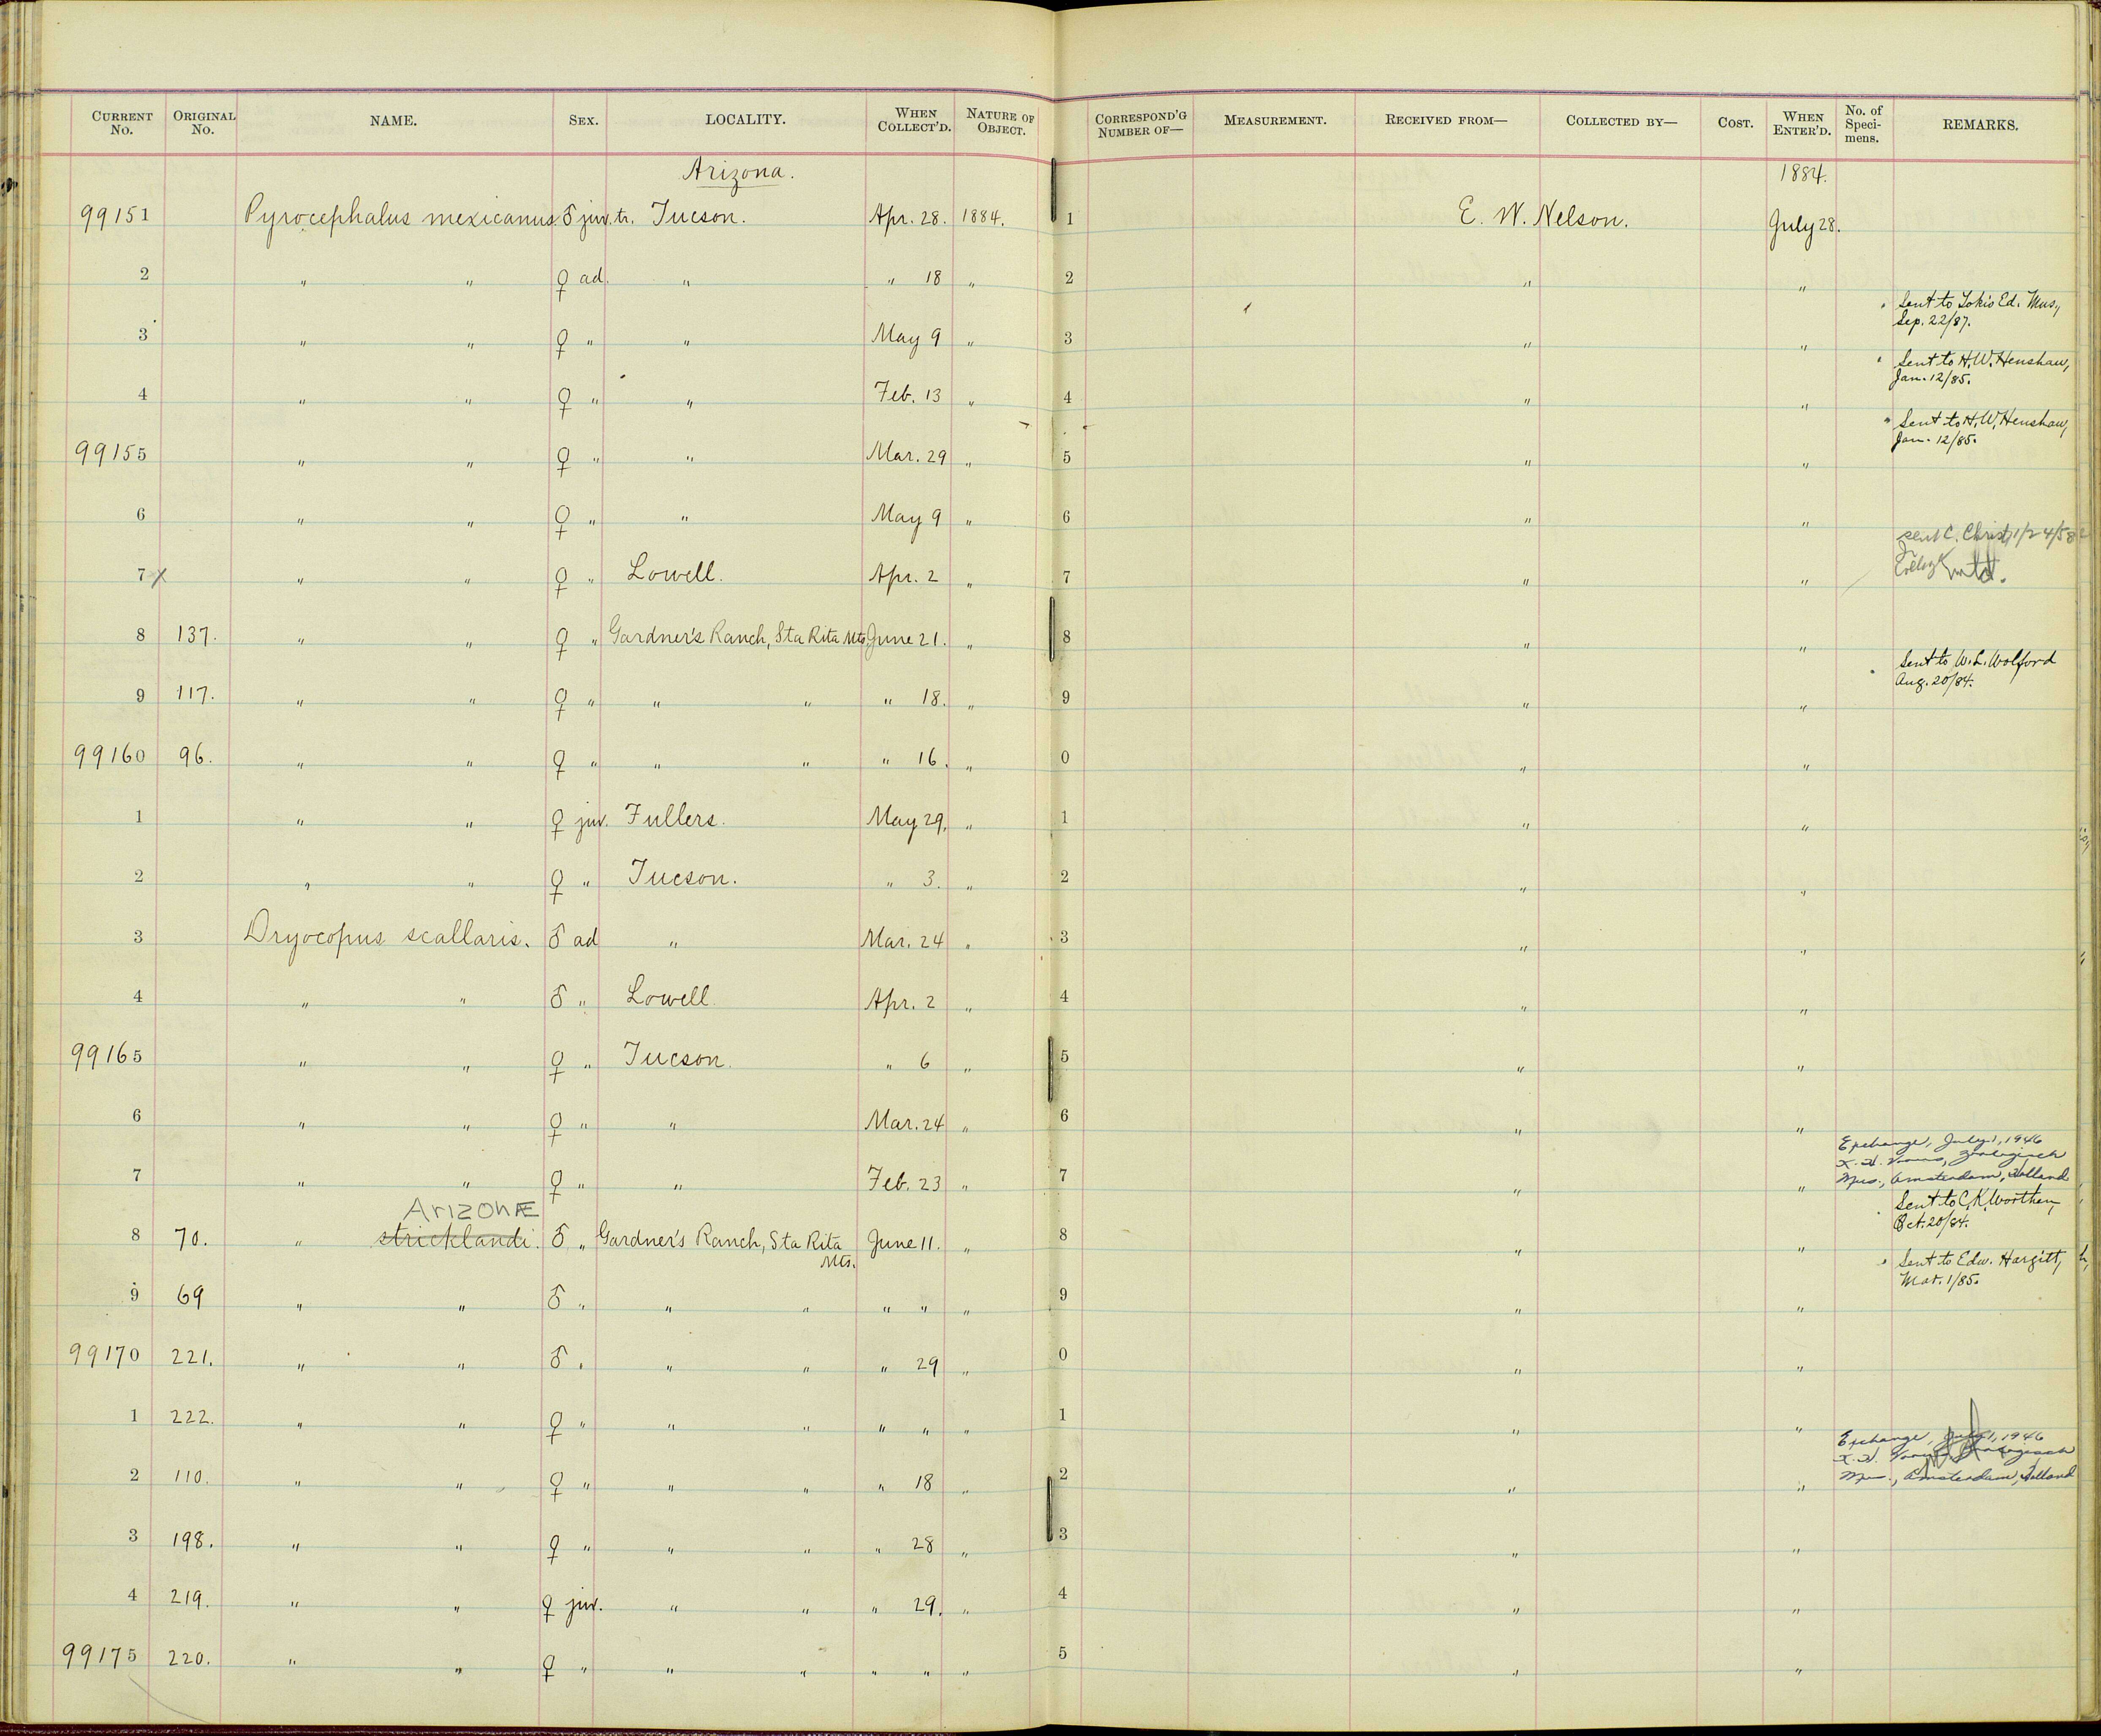 CURRENT No. ORIGINAL No. NAME. SEX. LOCALITY. WHEN COLLECT'D. NATURE OF OBJECT. CORRESPOND'G NUMBER OF— MEASUREMENT. RECEIVED FROM— COLLECTED BY— COST. WHEN ENTER'D. No. of Speci-mens. REMARKS.
Arizona. 1884.
99151 Pyrocephalus mexicanus. ♂ juv. tr. Tucson. Apr. 28. 1884. 1 E. W. Nelson. July 28.
2 " " ♀ ad. " " 18 " 2 " "
Sent to Tokio Ed. Mus.,
Sep. 22/87.
3 " " ♀ " " May 9 " 3 " "
Sent to H. W. Henshaw,
Jan. 12/85.
4 " " ♀ " " Feb. 13 " 4 " "
Sent to H. W. Henshaw,
Jan. 12/85.
99155 " " ♀ " " Mar. 29 " 5 " "
6 " " ♀ " " May 9 " 6 " "
sent C. Christ 1/24/58
7 x " " ♀ " Lowell. Apr. 2 " 7 " "
8 137. " " ♀ " Gardner's Ranch, Sta Rita Mts June 21. " 8 " "
Sent to W. L. Wolford
Aug. 20/84.
9 117. " " ♀ " " " " 18. " 9 " "
99160 96. " " ♀ " " " " 16. " 0 " "
1 " " ♀ juv. Fullers. May 29. " 1 " "
2 " " ♀ " Tucson. " 3. " 2 " "
3 Dryocopus scallaris. ♂ ad " Mar. 24 " 3 " "
4 " " ♂ " Lowell. Apr. 2 " 4 " "
99165 " " ♀ " Tucson. " 6 " 5 " "
6 " " ♀ " " Mar. 24 " 6 " "
Exchange, July 1, 1946
Zoologisch
Mus., Amsterdam, Holland
7 " " ♀ " " Feb. 23 " 7 " "
Sent to C. K. Worthen,
Oct. 20/84.
ArizonÆ
8 70. " stricklandi. ♂ " Gardner's Ranch, Sta Rita Mts. June 11. " 8 " "
Sent to Edw. Hargitt,
Mar. 1/85.
9 69 " " ♂ " " " " " " 9 " "
99170 221. " " ♂ " " " " 29 " 0 " "
1 222. " " ♀ " " " " " " 1 " "
Exchange, July 1, 1946
Zoologisch
Mus., Amsterdam, Holland
2 110. " " ♀ " " " " 18 " 2 " "
3 198. " " ♀ " " " " 28 " 3 " "
4 219. " " ♀ juv. " " " 29. " 4 " "
99175 220. " " ♀ " " " " " " 5 " "